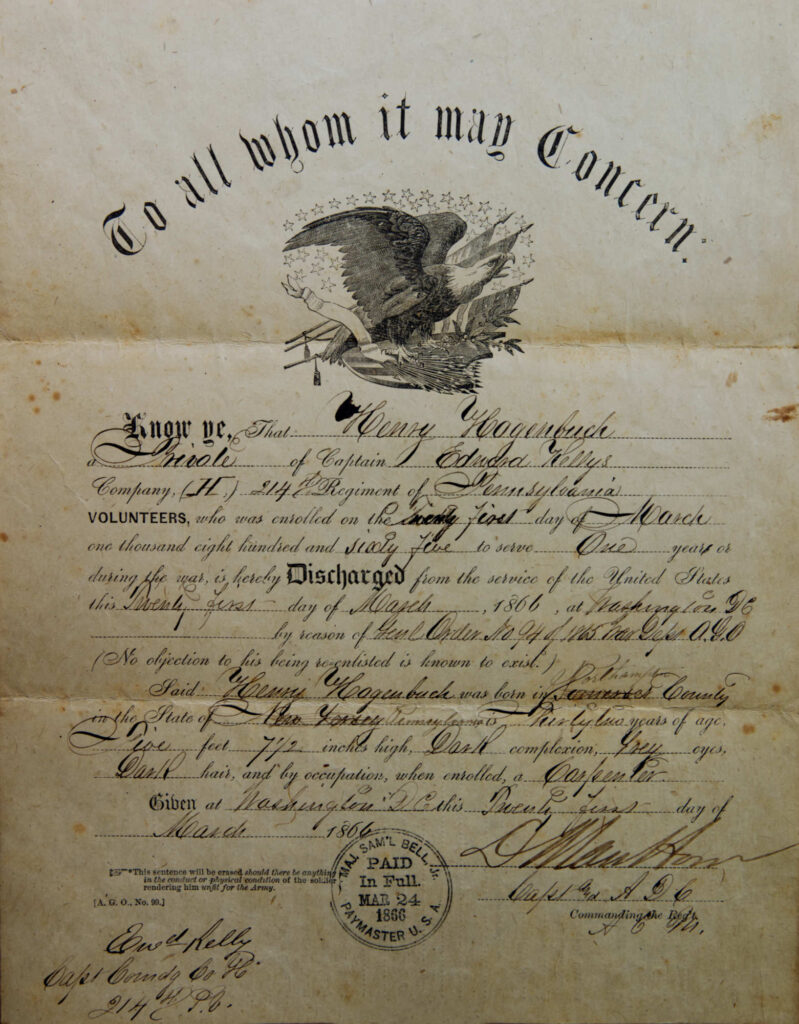 To all whom it may Concern:
Know ye, That Henry Hagenbuch
a Private of Captain Edward Kellys
Company, (H.) 214th Regiment of Pennsylvania
VOLUNTEERS, who was enrolled on the twenty first day of March
one thousand eight hundred and sixty five to serve One years or
during the war, is hereby Discharged from the service of the United States
this Twenty first day of March, 1866, at Washington DC
by reason of Genl Order No 94 of 1865 War Dept A.G.O
(No objection to his being re-enlisted is known to exist.)
Northampton
Said Henry Hagenbuch was born in County
in the State of New Jersey Pennsylvania is Thirty two years of age,
Five feet 7 1/2 inches high, Dark complexion, Grey eyes,
Dark hair, and by occupation, when enrolled, a Carpenter
Given at Washington D C this Twenty first day of
March 1866
MAJ. SAM'L BELL, Jr.
PAID
In Full.
MAR 24
1866
PAYMASTER U.S.A.
*This sentence will be erased should there be anything
in the conduct or physical condition of the soldier
rendering him unfit for the Army.
[A. G. O., No. 99.]
Capt A D C
Commanding the Reg't.
Edwd Kelly
Capt Comdg Co H
214th P.V.